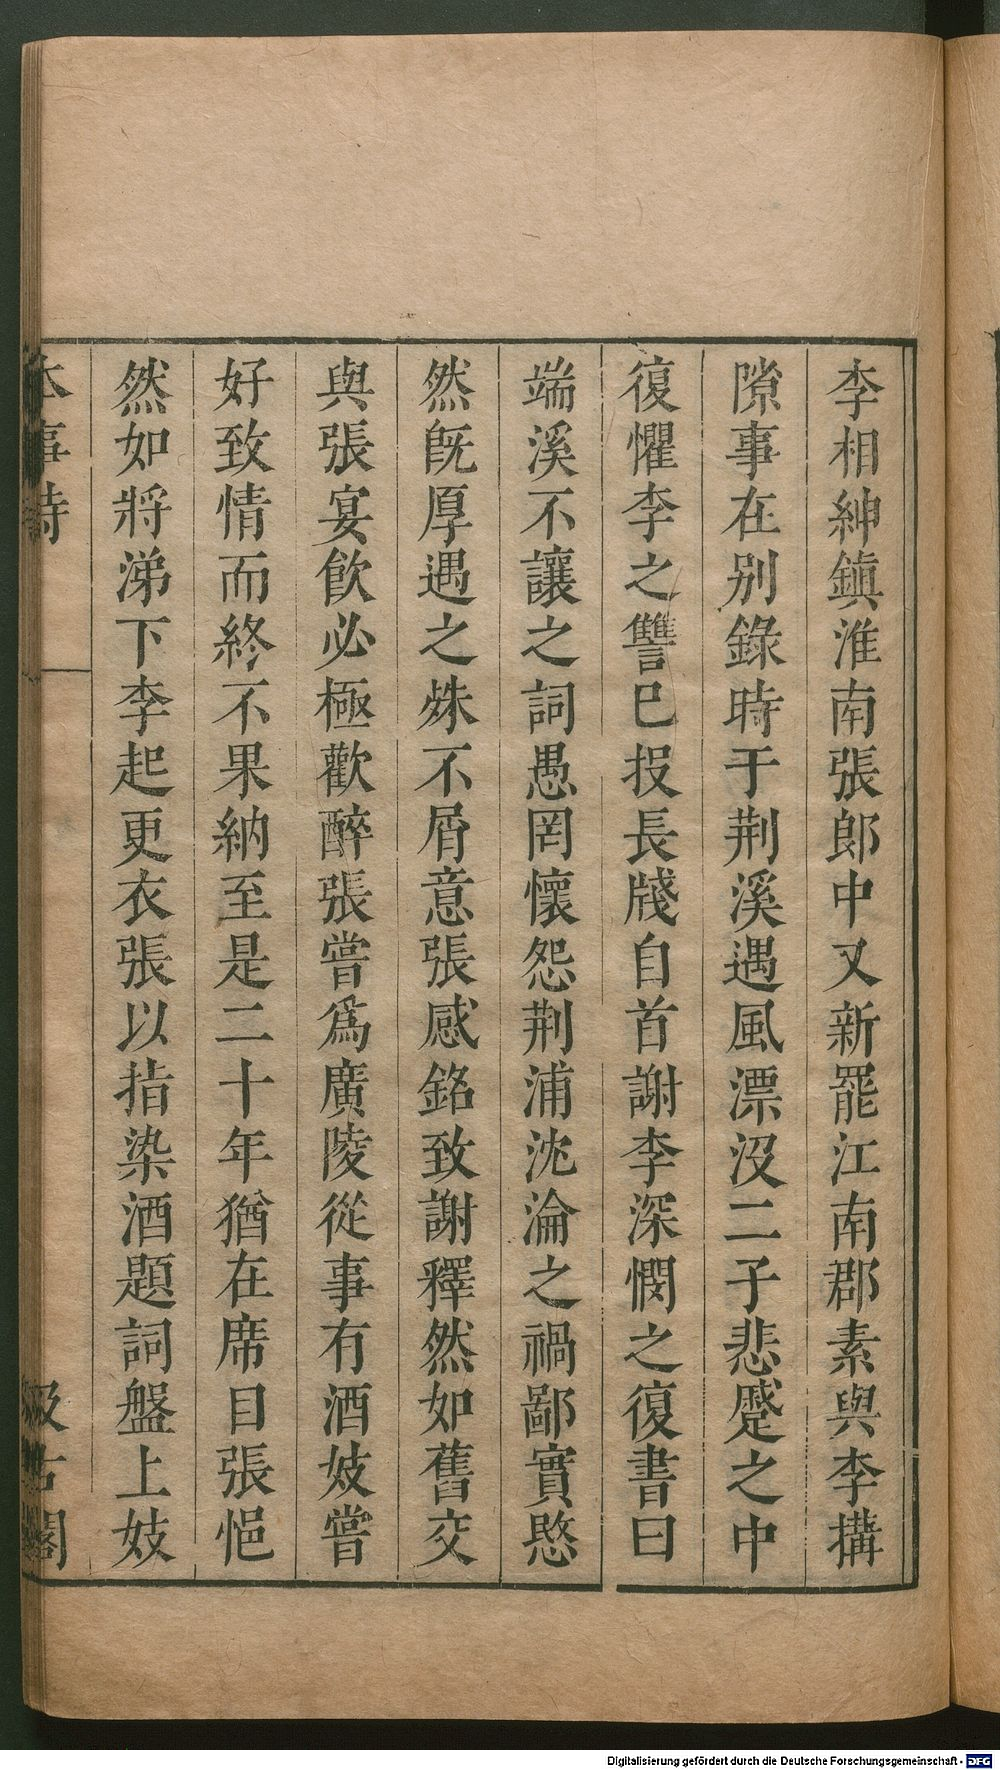 李相紳鎮淮南張郎中又新罷江南郡素與李搆
隙事在別錄時于荆溪遇風漂沒二子悲蹙之中
復懼李之讐巳投長牋自首謝李深憫之復書曰
端溪不讓之詞愚罔懷怨荆浦沈淪之禍鄙實愍
然旣厚遇之殊不屑意張感銘致謝釋然如舊交
與張宴飮必極歡醉張嘗爲廣陵從事有酒妓嘗
好致情而終不果納至是二十年猶在席目張悒
然如將涕下李起更衣張以指染酒題詞盤上妓
本事詩
汲古閣
Digitalisierung gefördert durch die Deutsche Forschungsgemeinschaft - DFG